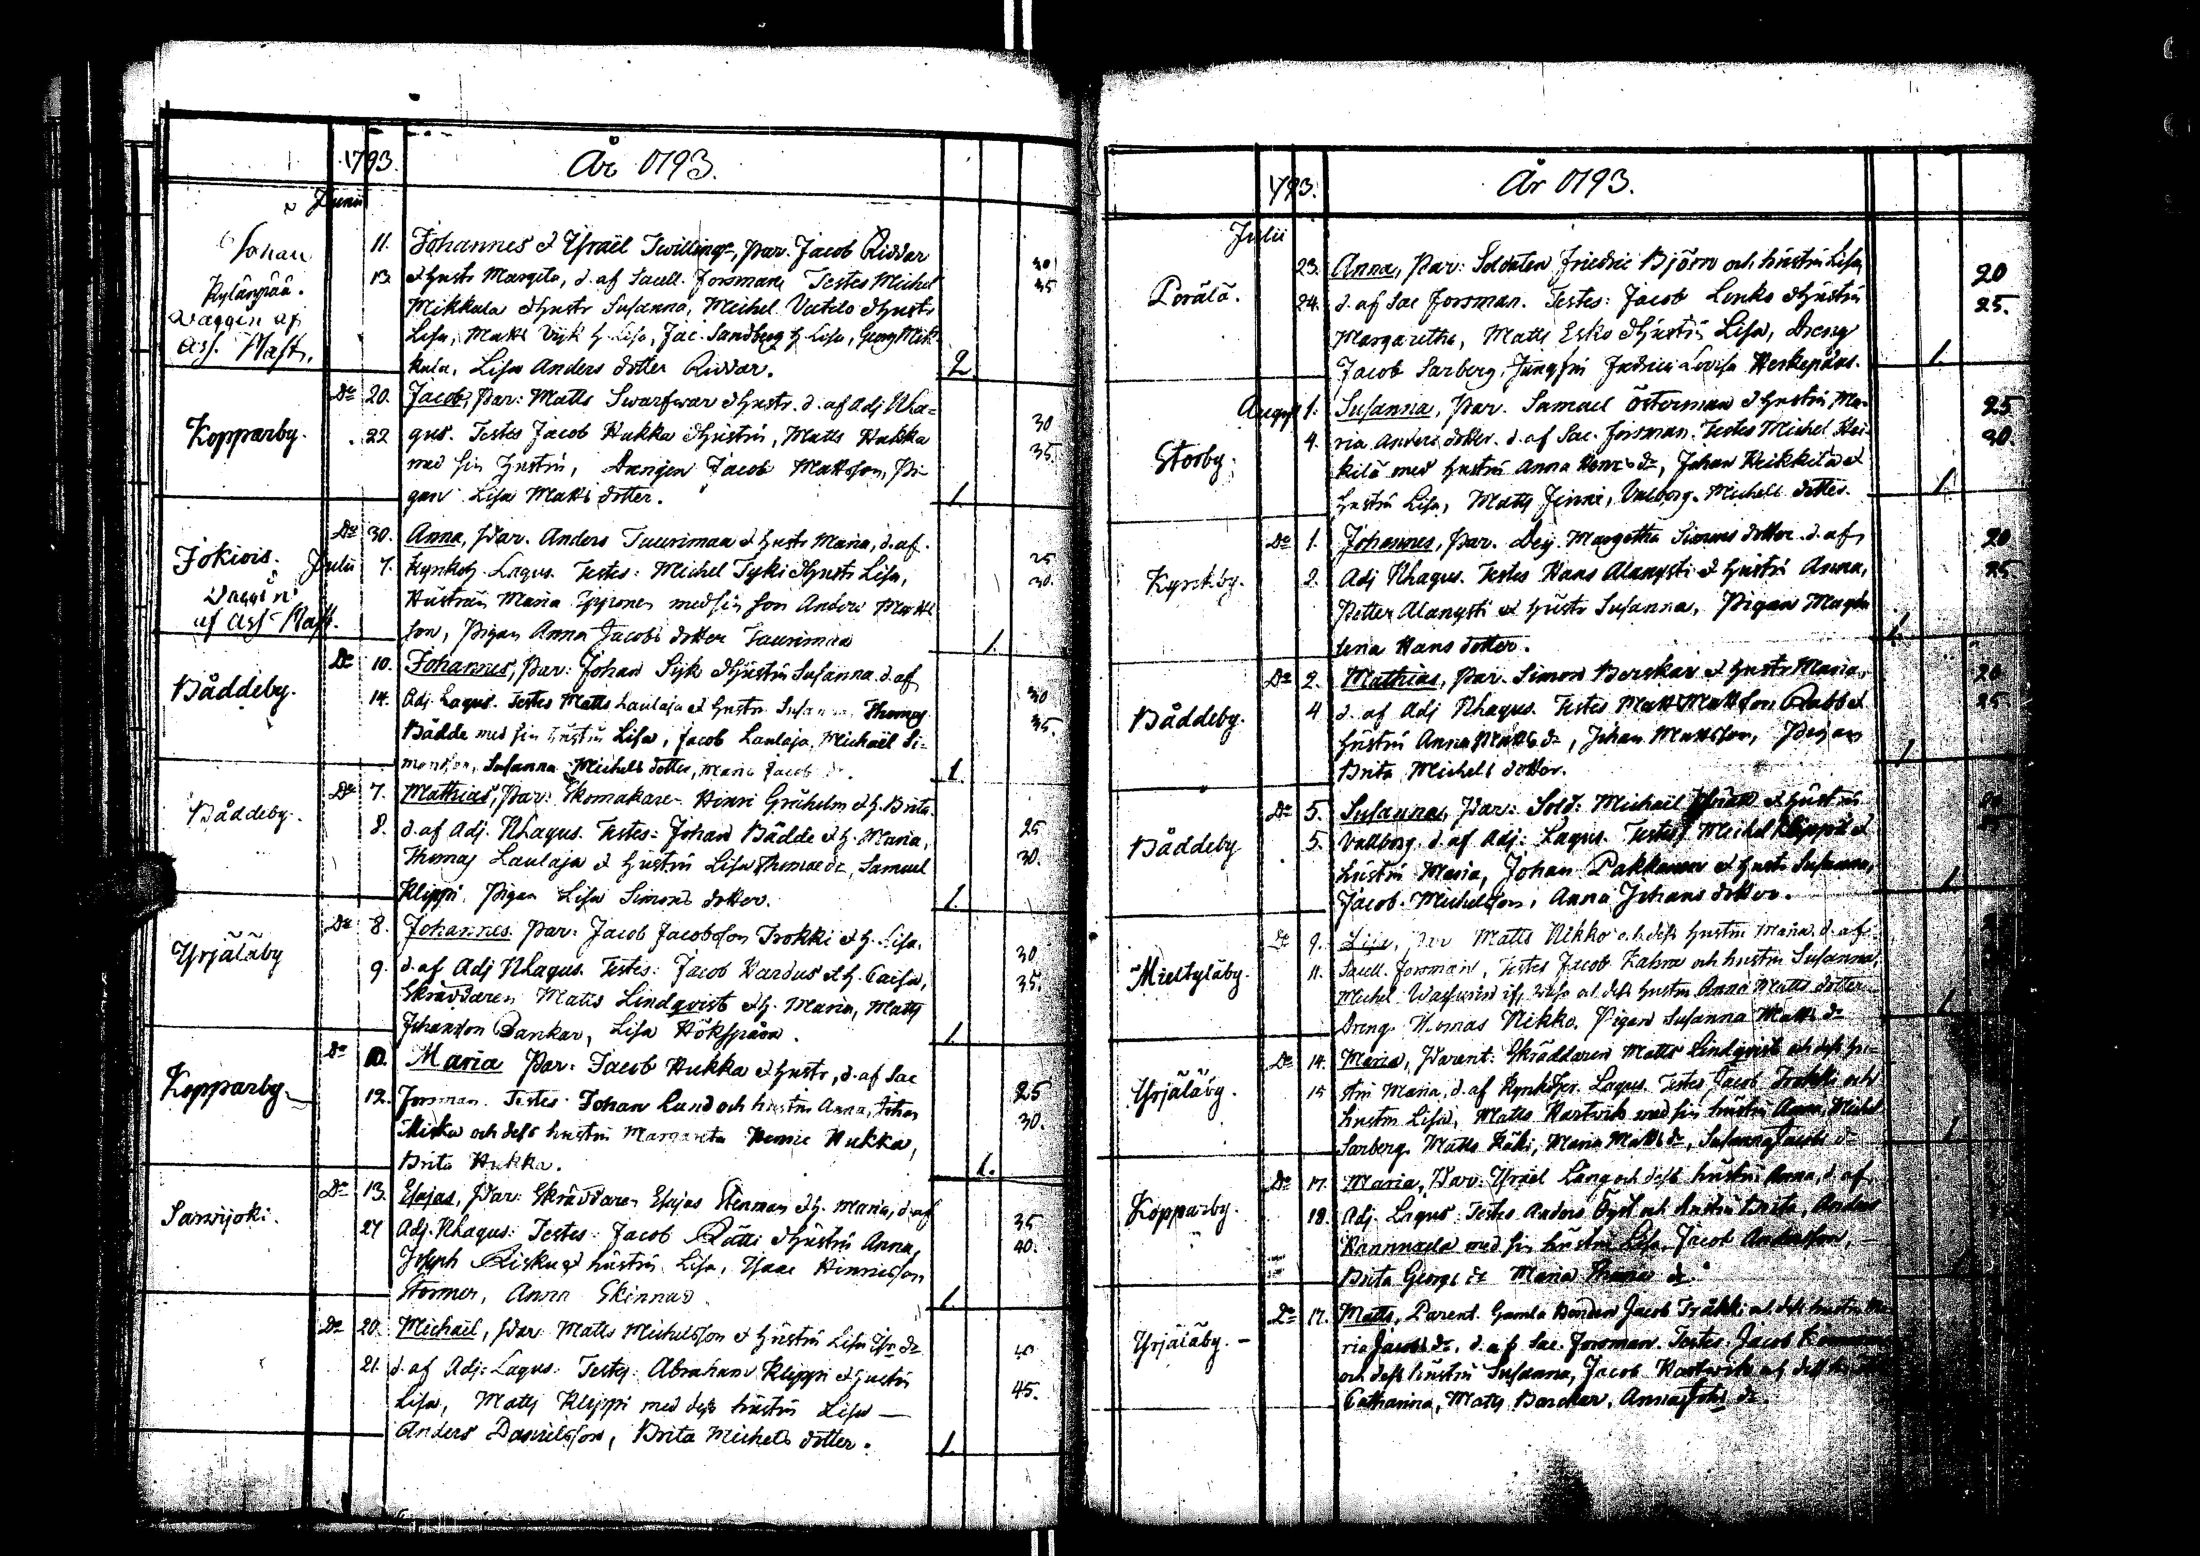 1793.
År 1793.
Junii
Johan
Kylänpää.
af
Ass. Mast.
11. Johannes & Israël Twillingr, Par. Jacob Riddar
13. & Hustr Margeta, d. af Sacell. Forsman Testes Michel
Mikkala & Hustr Susanna, Michel & Hustr
Lisa, Matts H. Lisa, Jac. Sandberg H. Lisa, Georg Mik-
kala, Lisa Anders dotter Riddar.
30
35
2
Kopparby.
Do 20. Jacob, Par: Matts Swarfwar & Hustr. d. af Adj. Rha=
22 gus. Testes Jacob Hukka & Hustru, Matts Hukka
med sin Hustru, Drengen Jacob Mattsson, Pi-
gan Lisa Matts dotter.
30
35.
1.
Jokiois.
af Ass. Mast.
Do 30. Anna, Par. Anders Tuuriman & Hustr Maria, d. af.
Julii 7. Kyrkoh. Lagus. Testes: Michel Tyki & Hustr Lisa,
Hustrun Maria med sin son Anders Matts
son, Pigan Anna Jacobs dotter Tuuriman
25
30.
1.
Båddeby.
Do 10. Johannes, Par: Johan Sijk & Hustru Susanna. d. af
14. Adj. Lagus. Testes Matts Laulaja & Hustru Susanna Thomas
Bådde med sin Hustru Lisa, Jacob Laulaja, Michaël Si=
monsson, Susanna Michels dotter, Maria Jacobs dr.
30
35.
1.
Båddeby.
Do 7. Mathias, Par: Skomakare Hinri Gråhelm & H. Brita
8. d. af Adj. Rhagus. Testes: Johan Bådde & H. Maria,
Thomas Laulaja & Hustru Lisa Thomæ dr, Samuel
Klippi. Pigan Lisa Simons dotter.
25
30.
1.
Yrjäläby
Do 8. Johannes. Par: Jacob Jacobsson Trokki & H. Lisa.
9. d. af Adj Rhagus. Testes: Jacob Hardus & H. Caisa,
Skräddaren Matts Lindqvist & H. Maria, Matts
Johansson Bankar, Lisa Hökspåra.
30
35.
1.
Kopparby
Do Maria Par: Jacob Hukka & Hustr, d. af Sac
12. Forsman. Testes Johan Lund och hustru Anna, Johan
och dess hustru Margareta Hukka,
Brita Hukka.
25
30.
1.
Sarwijoki.
Do 13. Esajas, Par: Skräddaren Esajas Stenman & H. Maria, d. af
27 Adj. Rhagus: Testes: Jacob Rätti & Hustru Anna,
Joseph Risku & hustru Lisa, Isaac Henricsson
Stormer, Anna Skinnar.
35
40.
1.
Do 20. Michaël, Par: Matts Michelsson & Hustru Lisa dr
21. d. af Adj: Lagus: Testes: Abraham Klippi & Hustru
Lisa, Matts Klippi med dess hustru Lisa —
Anders Danielsson, Brita Michels dotter.
40
45.
1.
1793.
År 1793.
Julii
Perälä.
23. Anna, Par: Soldaten Friedric Björn och hustru Lisa,
24. d. af Sac Forsman. Testes: Jacob Lenko & Hustru
Margaretha, Matts Esko & Hustru Lisa, Dreng
Jacob Sarberg, Jungfru Fredrica Lovisa Heskepäus.
20
25.
1.
Storby.
August 1. Susanna, Par. Samuel Österman & Hustru Ma-
4. ria Anders dotter. d. af Sac. Forsman. Testes Michel Hei-
kilä med Hustru Anna Henrs dr, Johan Heikkilä &
Hustru Lisa, Matts Finne, Valborg Michels dotter.
25
30.
1.
Kyrckby.
Do 1. Johannes, Par. Margetha Simons dotter d. af
2. Adj Rhagus. Testes Hans Alanysti & Hustru Anna,
Petter Alanysti & Hustr Susanna, Pigan Magda
lena Hans dotter.
20
25
1.
Båddeby.
Do 2. Mathias, Par. Simon Berskar & Hustr Maria,
4 d. af Adj Rhagus. Testes Matts Mattsson Rabb &
Hustru Anna Matts dr, Johan Mattsson, Pigan
Brita Michels dotter.
20
25.
1
Båddeby
Do 5. Susanna, Par: Sold: Michaël & Hustru
5. Vallborg. d. af Adj: Lagus. Testes: Michel Klippi &
hustru Maria, Johan Pakkanen & Hustr Susanna,
Jacob Michelsson, Anna Johans dotter.
1
Mieltyläby.
Do 9. Lisa, Par Matts Rikko och dess Hustru Maria d. af
11. Sacell. Forsman, Testes Jacob Kahra och hustru Susanna,
Michel och dess Hustru Anna Matts dotter
Dreng. Thomas Rikko. Pigan Susanna Matts dr
1
Yrjäläby.
Do 14. Maria, Parent: Skräddaren Matts Lindqvist och dess hu=
15 stru Maria, d. af Kyrkoher. Lagus. Testes Jacob Trokki och
hustru Lisa, Matts Hartwik med sin hustru Anna, Michel
Sarberg. Matts Köki, Maria Matts dr, Susanna Jacobs dr
1
Kopparby.
Do 17. Maria, Par: Israël Lång och dess hustru Anna, d. af
18. Adj. Lagus: Testes Anders Öyst och hustru Brita, Anders
Rannaela med sin hustru Lisa, Jacob Andersson, —
Brita Georgs dr Maria Thomæ dr.
Yrjäläby. —
Do 17. Matts, Parent. Gamla Bonden Jacob Tråkki och dess hustru Ma
ria Jacobs dr. d. af Sac. Forsman. Testes. Jacob
och dess hustru Susanna, Jacob Hartwik och dess hustru
Catharina, Matts Banckar, Anna Johs dr.